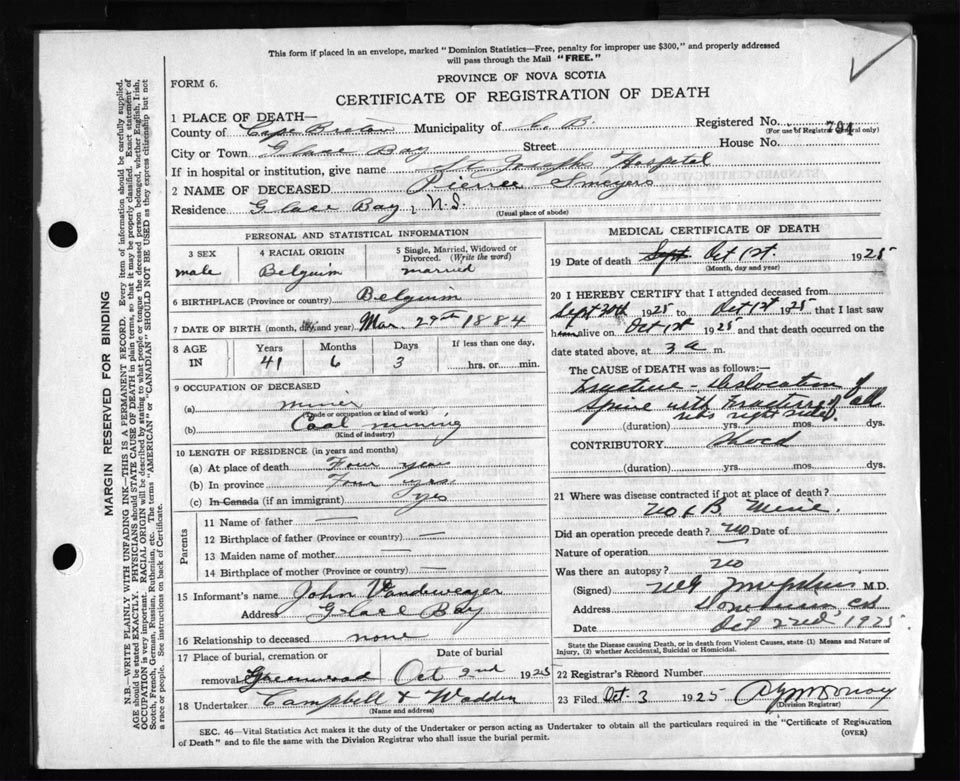 This form if placed in an envelope, marked "Dominion Statistics—Free, penalty for improper use $300," and properly addressed
will pass through the Mail "FREE."
PROVINCE OF NOVA SCOTIA
FORM 6.
CERTIFICATE OF REGISTRATION OF DEATH
1 PLACE OF DEATH—
Registered No. 794
(For use of Registrar General only)
County of Cape Breton Municipality of C. B.
House No.
City or Town Glace Bay Street
If in hospital or institution, give name St Joseph Hospital
2 NAME OF DECEASED Pierree Smeyers
Residence Glace Bay, N.S.
(Usual place of abode)
PERSONAL AND STATISTICAL INFORMATION
3 SEX
male
4 RACIAL ORIGIN
Belguim
5 Single, Married, Widowed or
Divorced. (Write the word)
married
6 BIRTHPLACE (Province or country) Belguim
7 DATE OF BIRTH (month, day, and year) Mar. 29th 1884
8 AGE
IN
Years
41
Months
6
Days
3
If less than one day,
hrs. or min.
9 OCCUPATION OF DECEASED
(a) miner
(Trade or occupation or kind of work)
(b) Coal mining
(Kind of industry)
10 LENGTH OF RESIDENCE (in years and months)
(a) At place of death Four year
(b) In province Four yrs.
(c) In Canada (if an immigrant) yes
Parents
11 Name of father —
12 Birthplace of father (Province or country) —
13 Maiden name of mother —
14 Birthplace of mother (Province or country) —
15 Informant's name John Vandeweager
Address Glace Bay
16 Relationship to deceased none
17 Place of burial, cremation or
removal Greenwood
Date of burial
Oct 2nd 1925
18 Undertaker Campbell & Wadden
(Name and address)
MEDICAL CERTIFICATE OF DEATH
19 Date of death Sept Oct 1st. 1925
(Month, day and year)
20 I HEREBY CERTIFY that I attended deceased from
Sept 30th 1925 to Oct 1st 1925 that I last saw
him alive on Oct 1st 1925 and that death occurred on the
date stated above, at 3 a. m.
The CAUSE of DEATH was as follows:—
Fracture - Dislocation of
Spine with Fractures of all
ribs right side.
(duration) yrs. mos. dys.
CONTRIBUTORY Shock
(duration) yrs. mos. dys.
21 Where was disease contracted if not at place of death?
No 6 B. Mine.
Did an operation precede death? no Date of
Nature of operation —
Was there an autopsy? no
(Signed) M.D.
Address
Date Oct 2nd 1925
State the disease causing Death, or in death from Violent Causes, state (1) Means and Nature of
Injury, (2) whether Accidental, Suicidal or Homicidal.
22 Registrar's Record Number
23 Filed Oct. 3 1925
(Division Registrar)
SEC. 46—Vital Statistics Act makes it the duty of the Undertaker or person acting as Undertaker to obtain all the particulars required in the "Certificate of Registration
of Death" and to file the same with the Division Registrar who shall issue the burial permit.
(OVER)
MARGIN RESERVED FOR BINDING
N.B.—WRITE PLAINLY WITH UNFADING INK—THIS IS A PERMANENT RECORD. Every item of information should be carefully supplied.
AGE should be stated EXACTLY. PHYSICIANS should STATE CAUSE OF DEATH in plain terms, so that it may be properly classified. Exact statement of
OCCUPATION is very important. RACIAL ORIGIN will be described by stating to what people or tongue the deceased person belonged, whether English, Irish,
Scotch, French, German, Russian, Ruthenian, etc. The terms "AMERICAN" or "CANADIAN" SHOULD NOT BE USED as they express citizenship but not
a race or people. See instructions on back of Certificate.